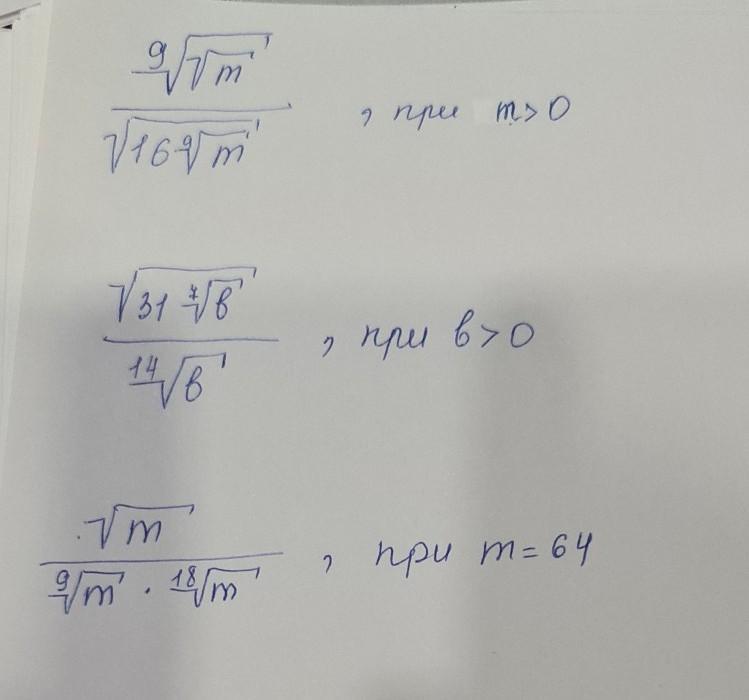 ⁹√(√m) / √(16 ⁹√m) , при m > 0
√(31 ⁷√в) / ¹⁴√в , при в > 0
√m / (⁹√m · ¹⁸√m) , при m = 64